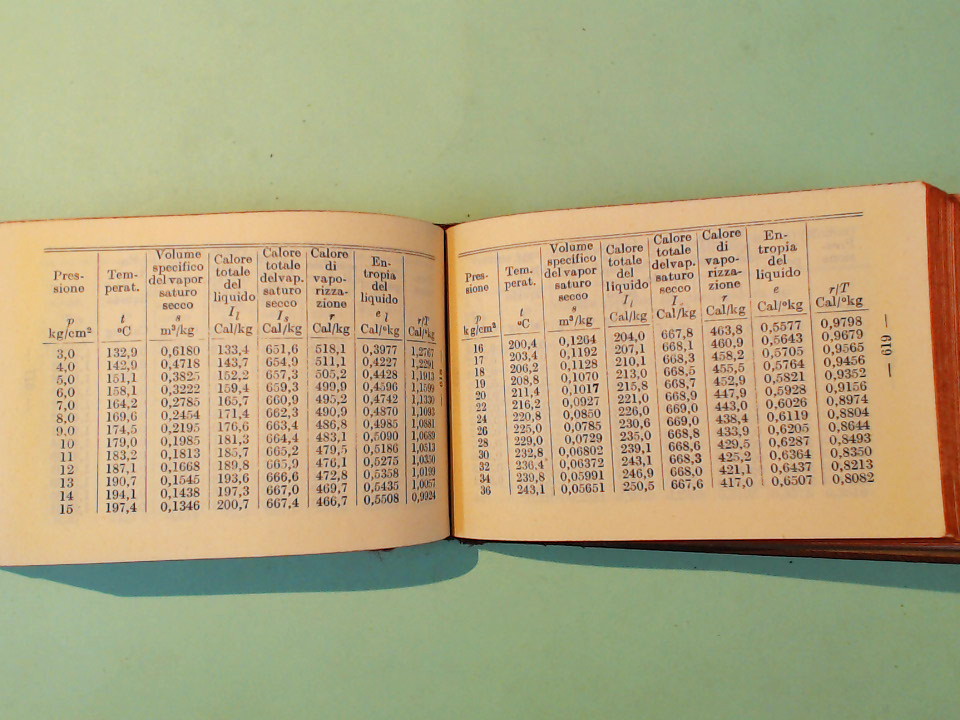 Pres- Tem- Volume Calore Calore Calore En-
sione perat. specifico totale totale di tropia
del vapor del del vap. vapo- del
saturo liquido saturo rizza- liquido
secco secco zione
p t s I l I s r e l r/T
kg/cm² °C m³/kg Cal/kg Cal/kg Cal/kg Cal/°kg Cal/°kg
3,0 132,9 0,6180 133,4 651,6 518,1 0,3977 1,2767
4,0 142,9 0,4718 143,7 654,9 511,1 0,4227 1,2291
5,0 151,1 0,3825 152,2 657,3 505,2 0,4428 1,1913
6,0 158,1 0,3222 159,4 659,3 499,9 0,4596 1,1599
7,0 164,2 0,2785 165,7 660,9 495,2 0,4742 1,1330
8,0 169,6 0,2454 171,4 662,3 490,9 0,4870 1,1093
9,0 174,5 0,2195 176,6 663,4 486,8 0,4985 1,0881
10 179,0 0,1985 181,3 664,4 483,1 0,5090 1,0689
11 183,2 0,1813 185,7 665,2 479,5 0,5186 1,0513
12 187,1 0,1668 189,8 665,9 476,1 0,5275 1,0350
13 190,7 0,1545 193,6 666,6 472,8 0,5358 1,0199
14 194,1 0,1438 197,3 667,0 469,7 0,5435 1,0057
15 197,4 0,1346 200,7 667,4 466,7 0,5508 0,9924
Pres- Tem- Volume Calore Calore Calore En-
sione perat. specifico totale totale di tropia
del vapor del del vap. vapo- del
saturo liquido saturo rizza- liquido
secco secco zione
p t s I l I s r e r/T
kg/cm² °C m³/kg Cal/kg Cal/kg Cal/kg Cal/°kg Cal/°kg
16 200,4 0,1264 204,0 667,8 463,8 0,5577 0,9798
17 203,4 0,1192 207,1 668,1 460,9 0,5643 0,9679
18 206,2 0,1128 210,1 668,3 458,2 0,5705 0,9565
19 208,8 0,1070 213,0 668,5 455,5 0,5764 0,9456
20 211,4 0,1017 215,8 668,7 452,9 0,5821 0,9352
22 216,2 0,0927 221,0 668,9 447,9 0,5928 0,9156
24 220,8 0,0850 226,0 669,0 443,0 0,6026 0,8974
26 225,0 0,0785 230,6 669,0 438,4 0,6119 0,8804
28 229,0 0,0729 235,0 668,8 433,9 0,6205 0,8644
30 232,8 0,06802 239,1 668,6 429,5 0,6287 0,8493
32 236,4 0,06372 243,1 668,3 425,2 0,6364 0,8350
34 239,8 0,05991 246,9 668,0 421,1 0,6437 0,8213
36 243,1 0,05651 250,5 667,6 417,0 0,6507 0,8082
— 619 —